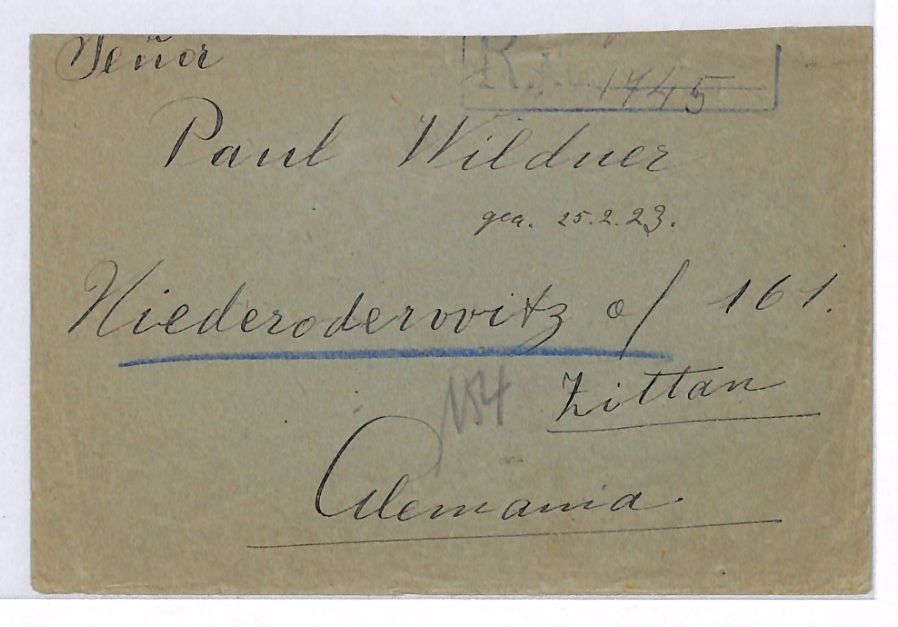 Señor
R. 1745
Paul Wildner
25.2.23.
Niederoderwitz o/ 161.
184
Zittau
Alemania